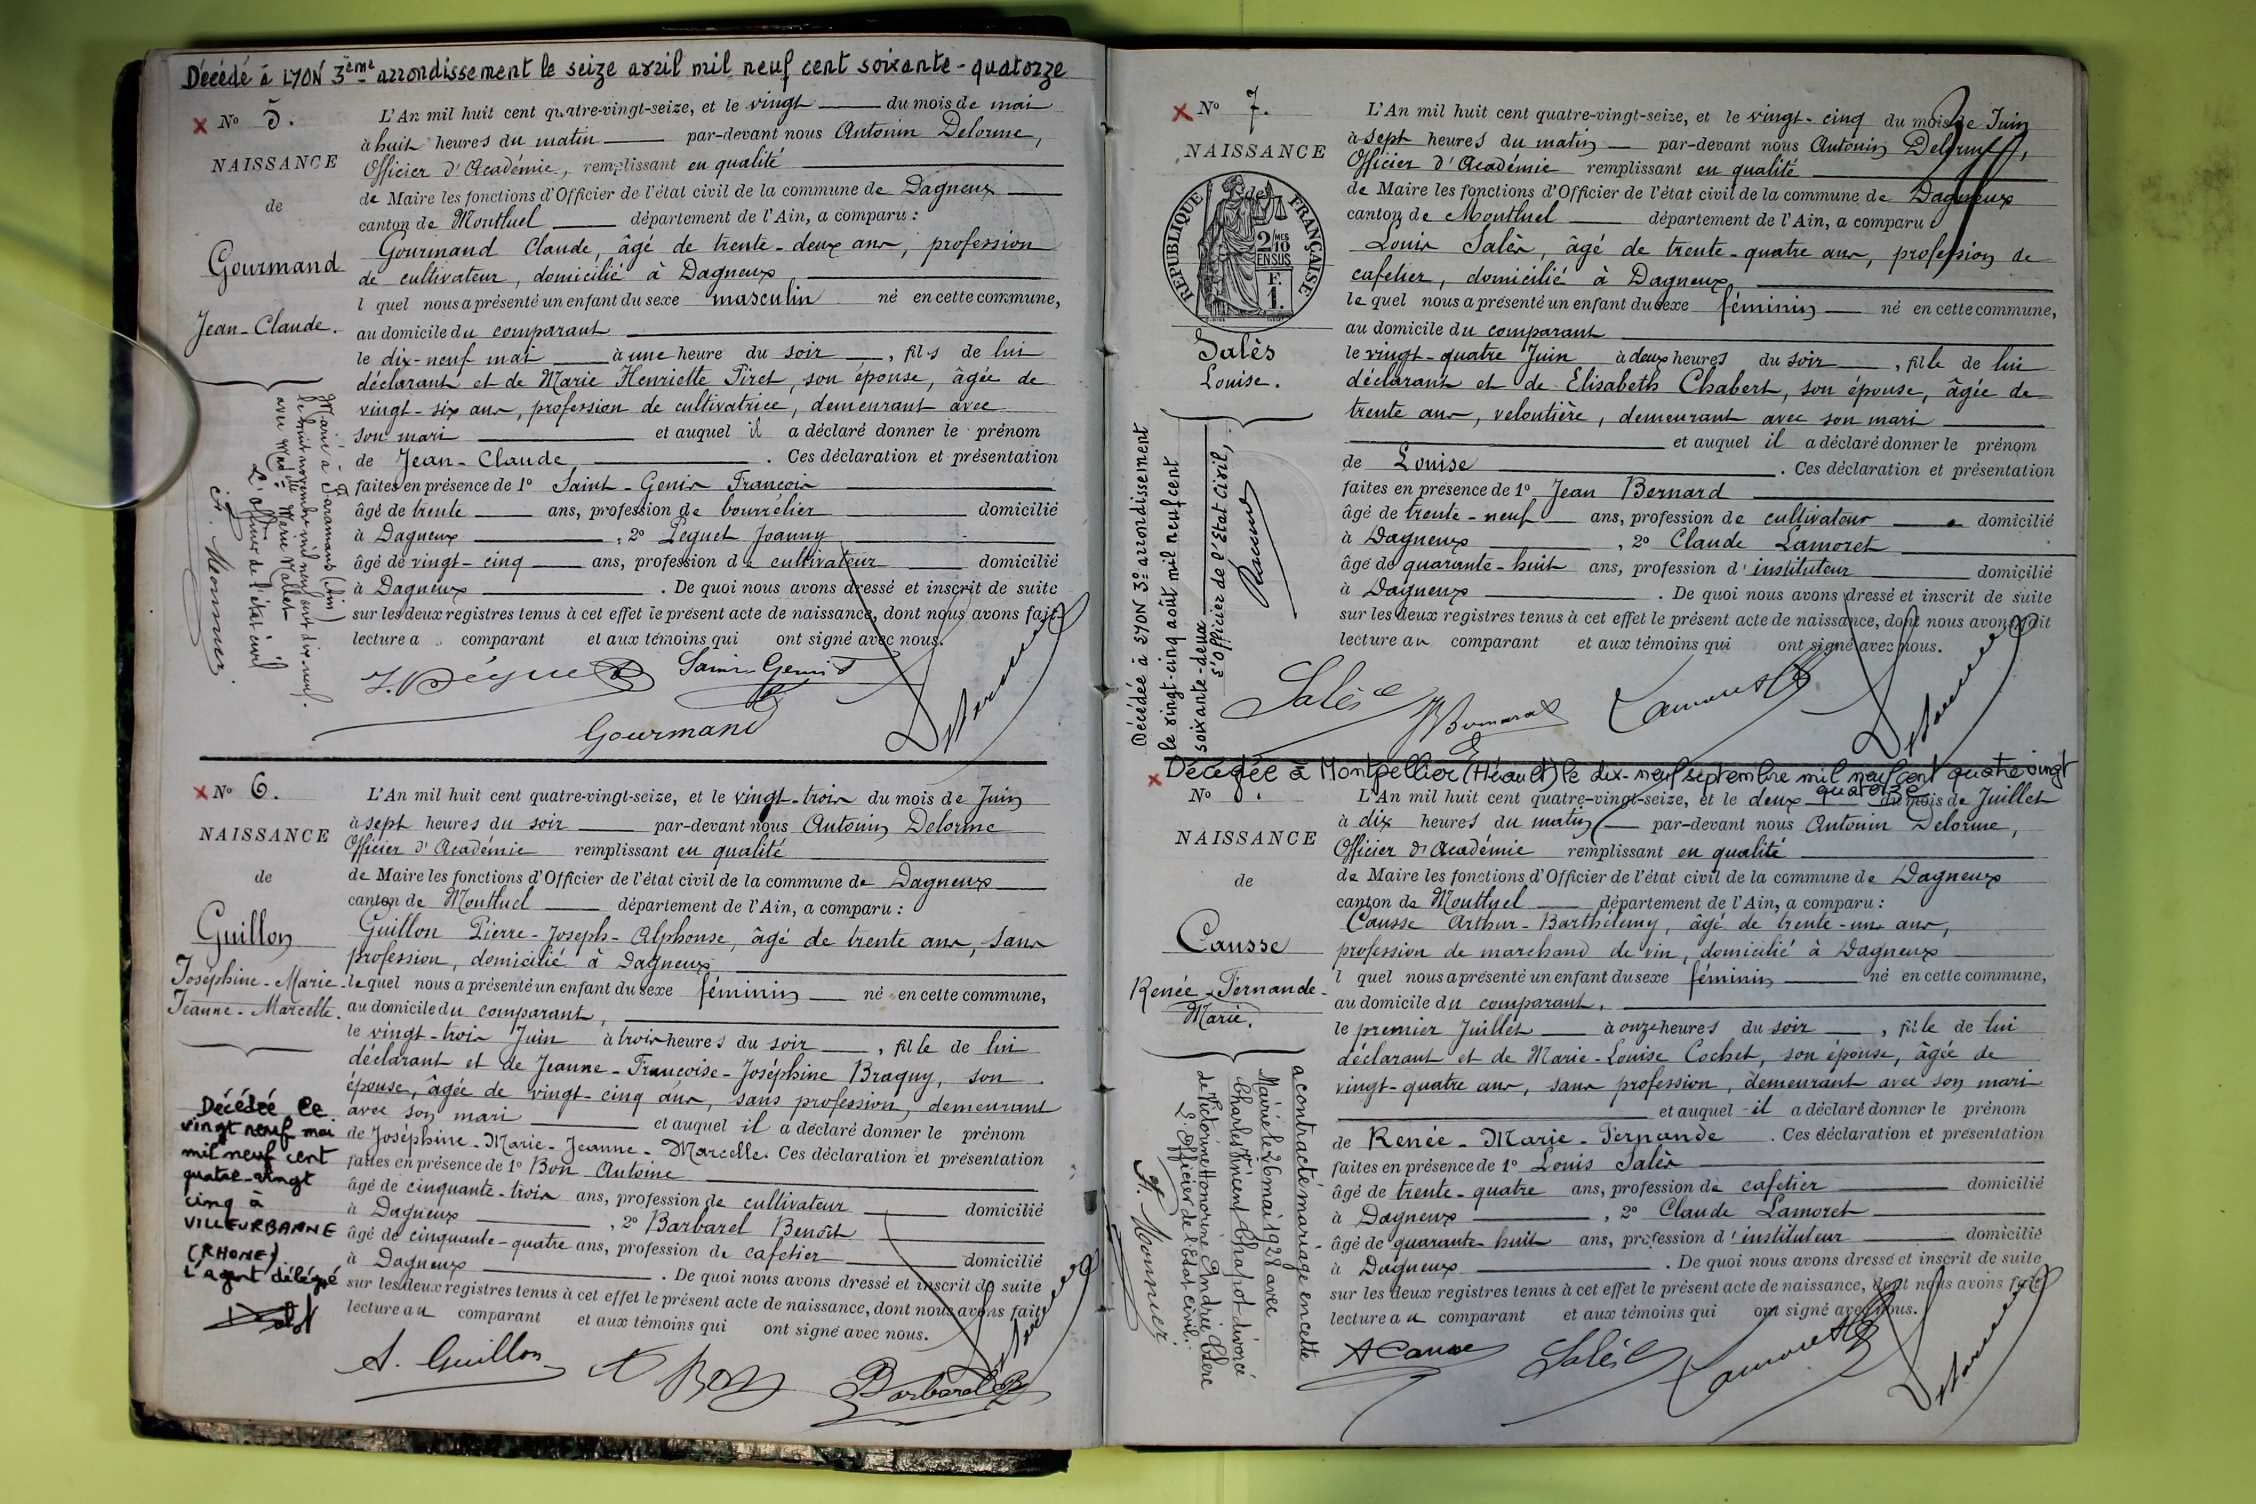 Décédé à LYON 3ème arrondissement le seize avril mil neuf cent soixante-quatorze
No 5.
NAISSANCE
de
Gourmand
Jean-Claude.
Marié à Faramans (Ain)
le huit novembre mil neuf cent dix-neuf
avec Melle Marie Mallet
L'officier de l'état civil
A. Monnier
L'An mil huit cent quatre-vingt-seize, et le vingt du mois de mai
à huit heures du matin par-devant nous Antonin Delorme,
Officier d'Académie, remplissant en qualité
de Maire les fonctions d'Officier de l'état civil de la commune de Dagneux
canton de Montluel département de l'Ain, a comparu :
Gourmand Claude, âgé de trente-deux ans, profession
de cultivateur, domicilié à Dagneux,
l quel nous a présenté un enfant du sexe masculin né en cette commune,
au domicile du comparant
le dix-neuf mai à une heure du soir, fils de lui
déclarant et de Marie Henriette Piret, son épouse, âgée de
vingt-six ans, profession de cultivatrice, demeurant avec
son mari et auquel il a déclaré donner le prénom
de Jean-Claude. Ces déclaration et présentation
faites en présence de 1o Saint-Genis François
âgé de trente ans, profession de bourrelier domicilié
à Dagneux, 2o Péguet Joanny
âgé de vingt-cinq ans, profession de cultivateur domicilié
à Dagneux. De quoi nous avons dressé et inscrit de suite
sur les deux registres tenus à cet effet le présent acte de naissance, dont nous avons fait
lecture a comparant et aux témoins qui ont signé avec nous.
J. Péguet Saint-Genis
Gourmand Delorme
No 6.
NAISSANCE
de
Guillon
Joséphine-Marie-
Jeanne-Marcelle.
Décédée le
vingt neuf mai
mil neuf cent
quatre-vingt
cinq à
VILLEURBANNE
(RHONE)
L'agent délégué
L'An mil huit cent quatre-vingt-seize, et le vingt-trois du mois de Juin
à sept heures du soir par-devant nous Antonin Delorme
Officier d'Académie remplissant en qualité
de Maire les fonctions d'Officier de l'état civil de la commune de Dagneux
canton de Montluel département de l'Ain, a comparu :
Guillon Pierre-Joseph-Alphonse, âgé de trente ans, sans
profession, domicilié à Dagneux
lequel nous a présenté un enfant du sexe féminin né en cette commune,
au domicile du comparant,
le vingt-trois Juin à trois heures du soir, fille de lui
déclarant et de Jeanne-Françoise-Joséphine Braguy, son
épouse, âgée de vingt-cinq ans, sans profession, demeurant
avec son mari et auquel il a déclaré donner le prénom
de Joséphine-Marie-Jeanne-Marcelle. Ces déclaration et présentation
faites en présence de 1o Bon Antoine
âgé de cinquante-trois ans, profession de cultivateur domicilié
à Dagneux, 2o Barbarel Benoît
âgé de cinquante-quatre ans, profession de cafetier domicilié
à Dagneux. De quoi nous avons dressé et inscrit de suite
sur les deux registres tenus à cet effet le présent acte de naissance, dont nous avons fait
lecture au comparant et aux témoins qui ont signé avec nous.
A. Guillon A Bon Barbarel B Delorme
No 7.
NAISSANCE
de
RÉPUBLIQUE FRANÇAISE
2/10 MES
EN SUS
F.
1.
Salès
Louise.
Décédée à LYON 3e arrondissement
le vingt-cinq août mil neuf cent
soixante-deux
L'Officier de l'Etat Civil,
L'An mil huit cent quatre-vingt-seize, et le vingt-cinq du mois de Juin
à sept heures du matin par-devant nous Antonin Delorme,
Officier d'Académie remplissant en qualité
de Maire les fonctions d'Officier de l'état civil de la commune de Dagneux
canton de Montluel département de l'Ain, a comparu
Louis Salès, âgé de trente-quatre ans, profession de
cafetier, domicilié à Dagneux,
lequel nous a présenté un enfant du sexe féminin né en cette commune,
au domicile du comparant
le vingt-quatre Juin à deux heures du soir, fille de lui
déclarant et de Elisabeth Chabert, son épouse, âgée de
trente ans, veloutière, demeurant avec son mari
et auquel il a déclaré donner le prénom
de Louise. Ces déclaration et présentation
faites en présence de 1o Jean Bernard
âgé de trente-neuf ans, profession de cultivateur domicilié
à Dagneux, 2o Claude Lamoret
âgé de quarante-huit ans, profession d'instituteur domicilié
à Dagneux. De quoi nous avons dressé et inscrit de suite
sur les deux registres tenus à cet effet le présent acte de naissance, dont nous avons fait
lecture au comparant et aux témoins qui ont signé avec nous.
Salès Bernard Lamoret Delorme
Décédée à Montpellier (Hérault) le dix-neuf septembre mil neuf cent quatre vingt
quatorze
No 8.
NAISSANCE
de
Causse
Renée-Fernande-
Marie.
a contracté mariage en cette
Mairie le 26 mai 1928 avec
Charles Vincent Chapot divorcé
de Victorine Honorine Andrée Clerc
L'Officier de l'Etat civil:
A. Monnier
L'An mil huit cent quatre-vingt-seize, et le deux du mois de Juillet
à dix heures du matin par-devant nous Antonin Delorme,
Officier d'Académie remplissant en qualité
de Maire les fonctions d'Officier de l'état civil de la commune de Dagneux
canton de Montluel département de l'Ain, a comparu :
Causse Arthur-Barthélemy, âgé de trente-un ans,
profession de marchand de vin, domicilié à Dagneux
l quel nous a présenté un enfant du sexe féminin né en cette commune,
au domicile du comparant,
le premier Juillet à onze heures du soir, fille de lui
déclarant et de Marie-Louise Cochet, son épouse, âgée de
vingt-quatre ans, sans profession, demeurant avec son mari
et auquel il a déclaré donner le prénom
de Renée-Marie-Fernande. Ces déclaration et présentation
faites en présence de 1o Louis Salès
âgé de trente-quatre ans, profession de cafetier domicilié
à Dagneux, 2o Claude Lamoret
âgé de quarante huit ans, profession d'instituteur domicilié
à Dagneux. De quoi nous avons dressé et inscrit de suite
sur les deux registres tenus à cet effet le présent acte de naissance, dont nous avons fait
lecture au comparant et aux témoins qui ont signé avec nous.
A Causse Salès Lamoret Delorme